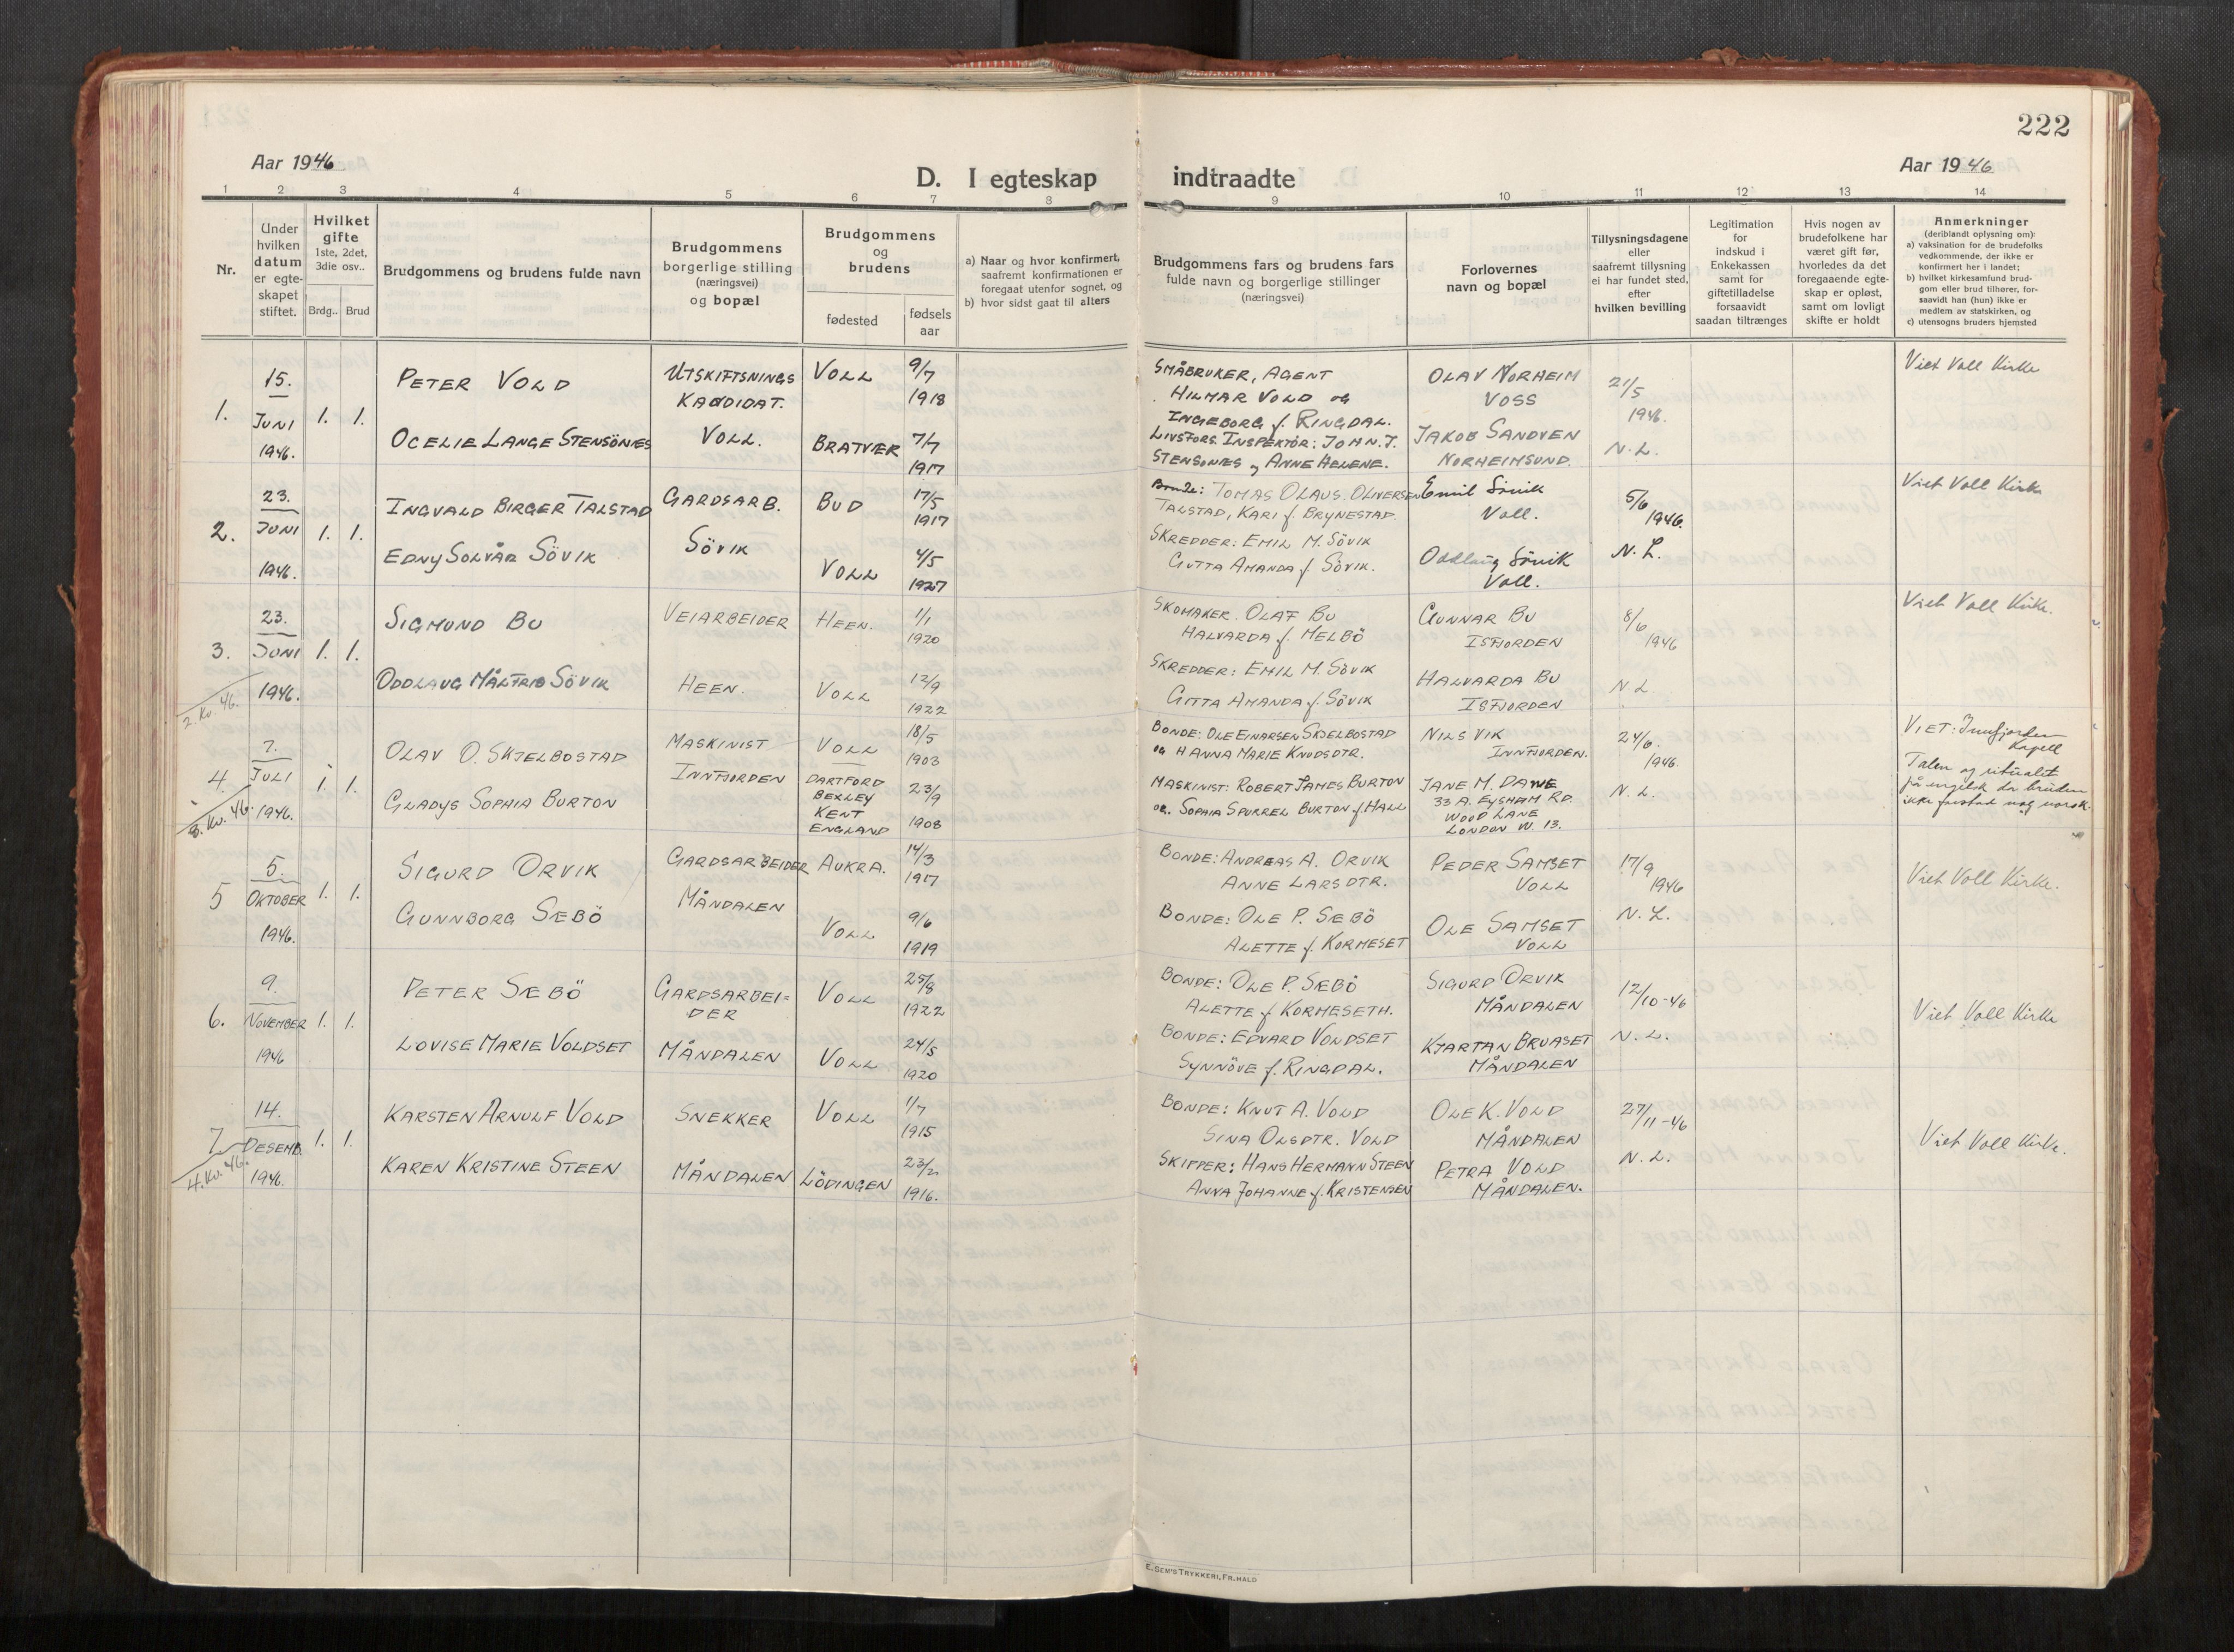 222
Aar 1946
Aar 1946
D. I egteskap indtraadte
1 2 3 4 5 6 7 8 9 10 11 12 13 14
Nr.
Under
hvilken
datum
er egte-
skapet
stiftet.
Hvilket
gifte
1ste, 2det,
3die osv..
Brdg.. Brud
Brudgommens og brudens fulde navn
Brudgommens
borgerlige stilling
(næringsvei)
og bopæl
Brudgommens
og
brudens
fødested
fødsels
aar
a) Naar og hvor konfirmert,
saafremt konfirmationen er
foregaat utenfor sognet, og
b) hvor sidst gaat til alters
Brudgommens fars og brudens fars
fulde navn og borgerlige stillinger
(næringsvei)
Forlovernes
navn og bopæl
Tillysningsdagene
eller
saafremt tillysning
ei har fundet sted,
efter
hvilken bevilling
Legitimation
for
indskud i
Enkekassen
samt for
giftetilladelse
forsaavidt
saadan tiltrænges
Hvis nogen av
brudefolkene har
været gift før,
hvorledes da det
foregaaende egte-
skap er opløst,
samt om lovligt
skifte er holdt
Anmerkninger
(deriblandt oplysning om):
a) vaksination for de brudefolks
vedkommende, der ikke er
konfirmert her i landet;
b) hvilket kirkesamfund brud-
gom eller brud tilhører, for-
saavidt han (hun) ikke er
medlem av statskirken, og
c) utensogns bruders hjemsted
1.
15.
JUNI
1946.
1. 1.
PETER VOLD
OCELIE LANGE STENSÖNÆS
UTSKIFTSNINGS
KANDIDAT.
VOLL.
VOLL
BRATVÆR
9/7
1918
7/7
1917
SMÅBRUKER, AGENT
HILMAR VOLD og
INGEBORG f. RINGDAL.
LIVSFORS. INSPEKTÖR: JOHN. J.
STENSÖNÆS og ANNE HELENE.
OLAV NORHEIM
VOSS
JAKOB SANDVEN
NORHEIMSUND.
21/5
1946.
N.L.
Viet Voll Kirke
2.
23.
JUNI
1946.
1. 1.
INGVALD BIRGER TALSTAD
EDNY SOLVÅR SÖVIK
GARDSARB.
SÖVIK
BUD
VOLL
17/5
1917
4/5
1927
Bonde: TOMAS OLAUS. OLIVERSEN
TALSTAD, KARI f. BRYNESTAD.
SKREDDER: EMIL M. SÖVIK
GUTTA AMANDA f. SÖVIK.
Emil Sövik
Voll.
Oddlaug Sövik
Voll.
5/6
1946.
N.L.
Viet Voll Kirke
3.
23.
JUNI
1946.
2. Kv. 46.
1. 1.
SIGMUND BU
ODDLAUG MÅLFRID SÖVIK
VEIARBEIDER
HEEN.
HEEN.
VOLL
1/1
1920
12/9
1922
SKOMAKER. OLAF BU
HALVARDA f. MELBÖ
SKREDDER: EMIL M. SÖVIK
GITTA AMANDA f. SÖVIK
GUNNAR BU
ISFJORDEN
HALVARDA BU
ISFJORDEN
8/6
1946
N L
Viet Voll Kirke.
4.
7.
JULI
1946.
3. Kv. 46.
1 1.
OLAV O. SKJELBOSTAD
GLADYS SOPHIA BURTON
MASKINIST
INNFJORDEN
VOLL
DARTFORD
BEXLEY
KENT
ENGLAND
18/5
1903
23/9
1908
BONDE: OLE EINARSEN SKJELBOSTAD
og HANNA MARIE KNUDSDTR.
MASKINIST: ROBERT JAMES BURTON
og. SOPHIA SPURREL BURTON f. HALL
NILS VIK
INNFJORDEN.
JANE M. DAWE
33 A. EYSHAM RD.
WOOD LANE
LONDON W. 13.
24/6.
1946.
N. L.
VIET: Innfjorden
Kapell
Talen og ritualet
på engelsk da bruden
ikke forstod nog norsk.
5
5.
OKTOBER
1946.
1. 1.
SIGURD ORVIK
GUNNBORG SÆBÖ
GARDSARBEIDER
MÅNDALEN
AUKRA.
VOLL
14/3
1917
9/6
1919
BONDE: ANDREAS A. ORVIK
ANNE LARSDTR.
BONDE: OLE P. SÆBÖ
ALETTE f. KORMESET
PEDER SAMSET
VOLL
OLE SAMSET
VOLL
17/9
1946
N. L.
Viet Voll Kirke.
6.
9.
NOVEMBER
1946
1. 1.
PETER SÆBÖ
LOVISE MARIE VOLDSET
GARDSARBEI=
DER
MÅNDALEN
VOLL
VOLL
25/8
1922
24/5
1920
BONDE: OLE P. SÆBÖ
ALETTE f KORMESETH.
BONDE: EDVARD VOLDSET
SYNNÖVE f. RINGDAL.
SIGURD ORVIK
MÅNDALEN
KJARTAN BRUASET
MÅNDALEN
12/10-46
N. L.
Viet Voll Kirke
7.
14.
DESEMB.
1946.
4. Kv. 46.
1. 1.
KARSTEN ARNULF VOLD
KAREN KRISTINE STEEN
SNEKKER
MÅNDALEN
VOLL
LÖDINGEN
1/7
1915
23/2
1916.
BONDE: KNUT A. VOLD
SINA OLSDTR. VOLD
SKIPPER: HANS HERMANN STEEN
ANNA JOHANNE f. KRISTENSEN
OLE K. VOLD
MÅNDALEN
PETRA VOLD
MÅNDALEN.
27/11-46
N. L.
Viet Voll Kirke.
E. SEM'S TRYKKERI, FR.HALD